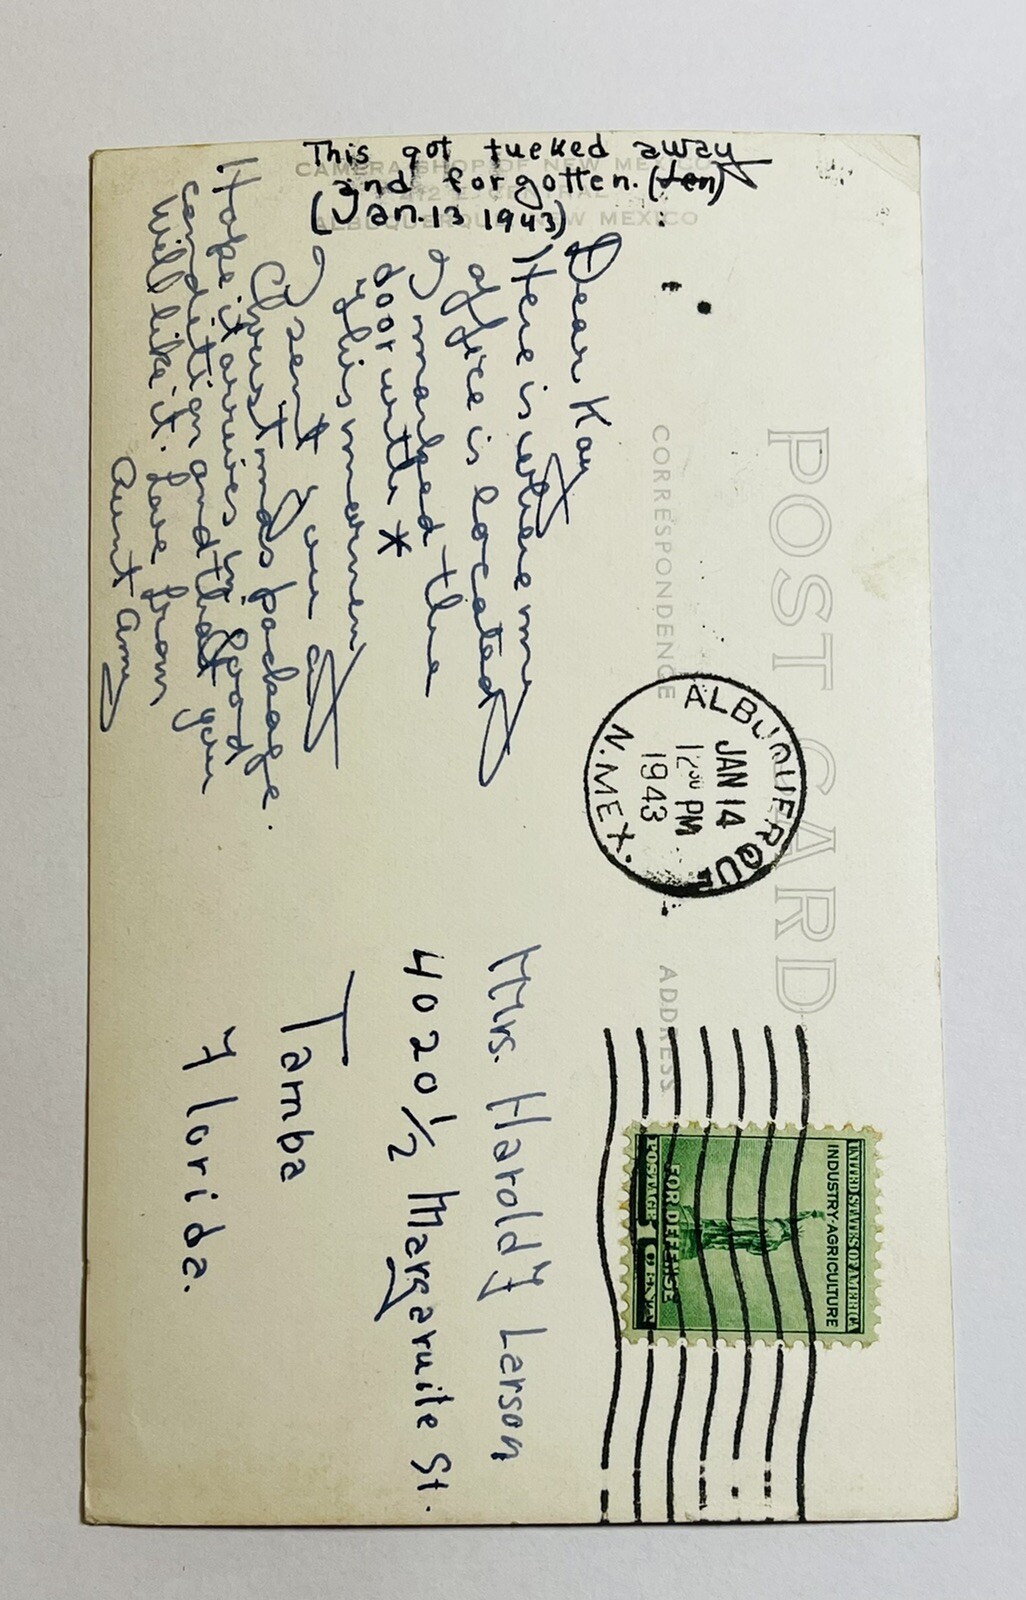 This got tucked away
and forgotten. (Jan)
(Jan. 13 1943)
CAMERA SHOP OF NEW MEXICO
ALBUQUERQUE, NEW MEXICO
POST CARD
CORRESPONDENCE
ADDRESS
Dear Kay
Here is where my
office is located
I marked the
door with *
this morning
I sent your
Christmas package.
Hope it arrives in good
condition and that you
will like it. Love from
Aunt Amy
ALBUQUERQUE
JAN 14
12 30 PM
1943
N. MEX.
UNITED STATES OF AMERICA
INDUSTRY-AGRICULTURE
FOR DEFENSE
POSTAGE 1 CENT
Mrs. Harold J Larson
4020 1/2 Margaruite St.
Tamba
Florida.